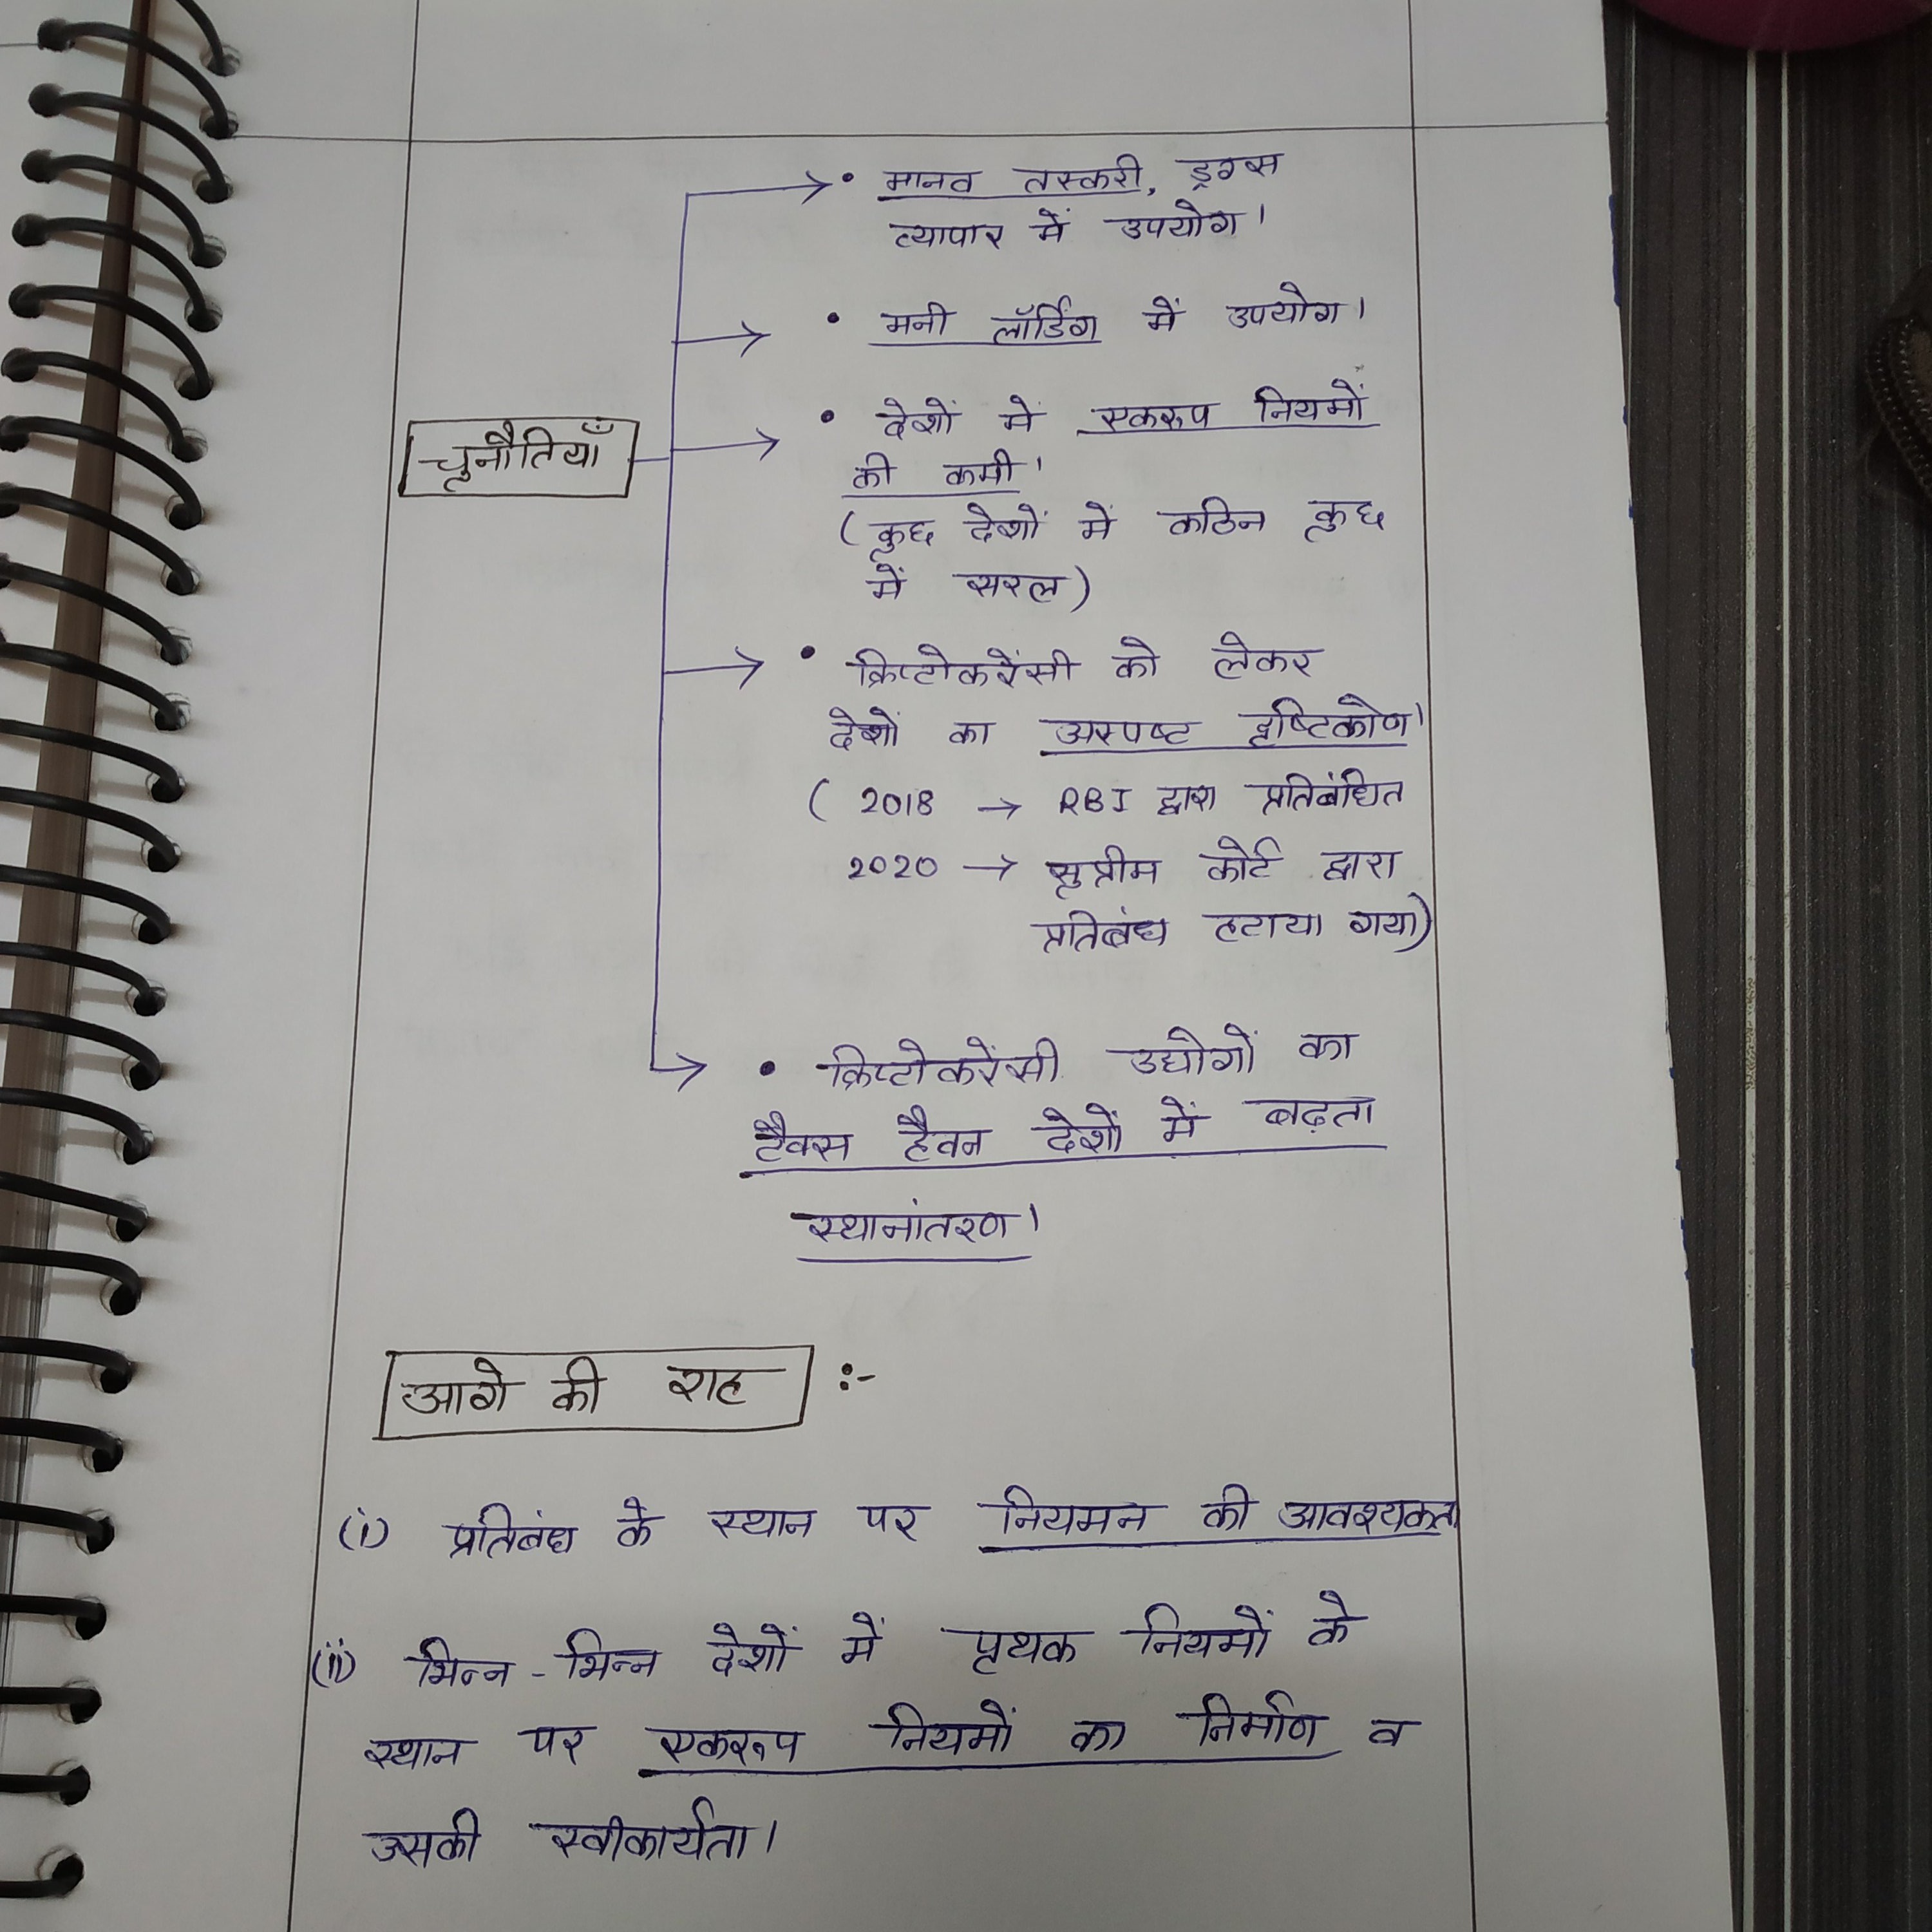 • मानव तस्करी, ड्रग्स
व्यापार में उपयोग।
• मनी लॉर्डिंग में उपयोग।
चुनौतियाँ
• देशों में एकरुप नियमों
की कमी।
(कुछ देशों में कठिन कुछ
में सरल)
• क्रिप्टोकरेंसी को लेकर
देशों का अस्पष्ट दृष्टिकोण।
( 2018 → RBI द्वारा प्रतिबंधित
2020 → सुप्रीम कोर्ट द्वारा
प्रतिबंध हटाया गया)
• क्रिप्टोकरेंसी उद्योगों का
टैक्स हैवन देशों में बढ़ता
स्थानांतरण।
आगे की राह :-
(i) प्रतिबंध के स्थान पर नियमन की आवश्यकता
(ii) भिन्न-भिन्न देशों में पृथक नियमों के
स्थान पर एकरुप नियमों का निर्माण व
उसकी स्वीकार्यता।